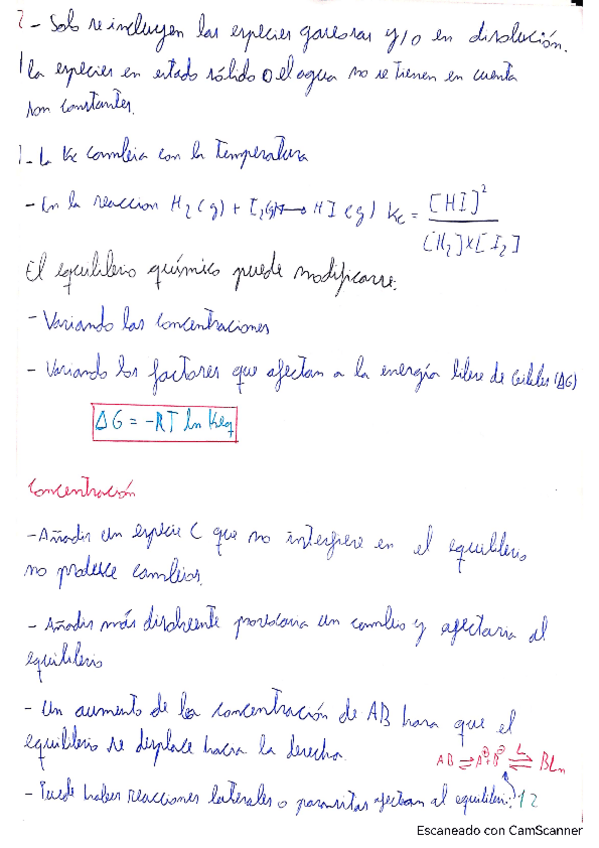 2- Solo se incluyen las especies gaseosas y/o en disolución.
la especies en estado sólido o el agua no se tienen en cuenta
son constantes.
1- La Kc cambia con la temperatura
- En la reaccion H2(g) + I2(g) ⟷ HI(g) Kc = [HI]² / [H2]x[I2]
El equilibrio químico puede modificarse:
- Variando las concentraciones
- Variando los factores que afectan a la energía libre de Gibbs (ΔG)
ΔG = -RT ln Keq
Concentración
- Añadir un especie C que no interfiere en el equilibrio
no produce cambios.
- Añadir más disolvente provocaria un cambio y afectaria al
equilibrio
- Un aumento de la concentración de AB hara que el
equilibrio se desplace hacia la derecha.
AB ⇌ A⊕ + B⊖ ⇌ BLn
L
- Puede haber reacciones laterales o parasitas afectan al equilibrio
12
Escaneado con CamScanner